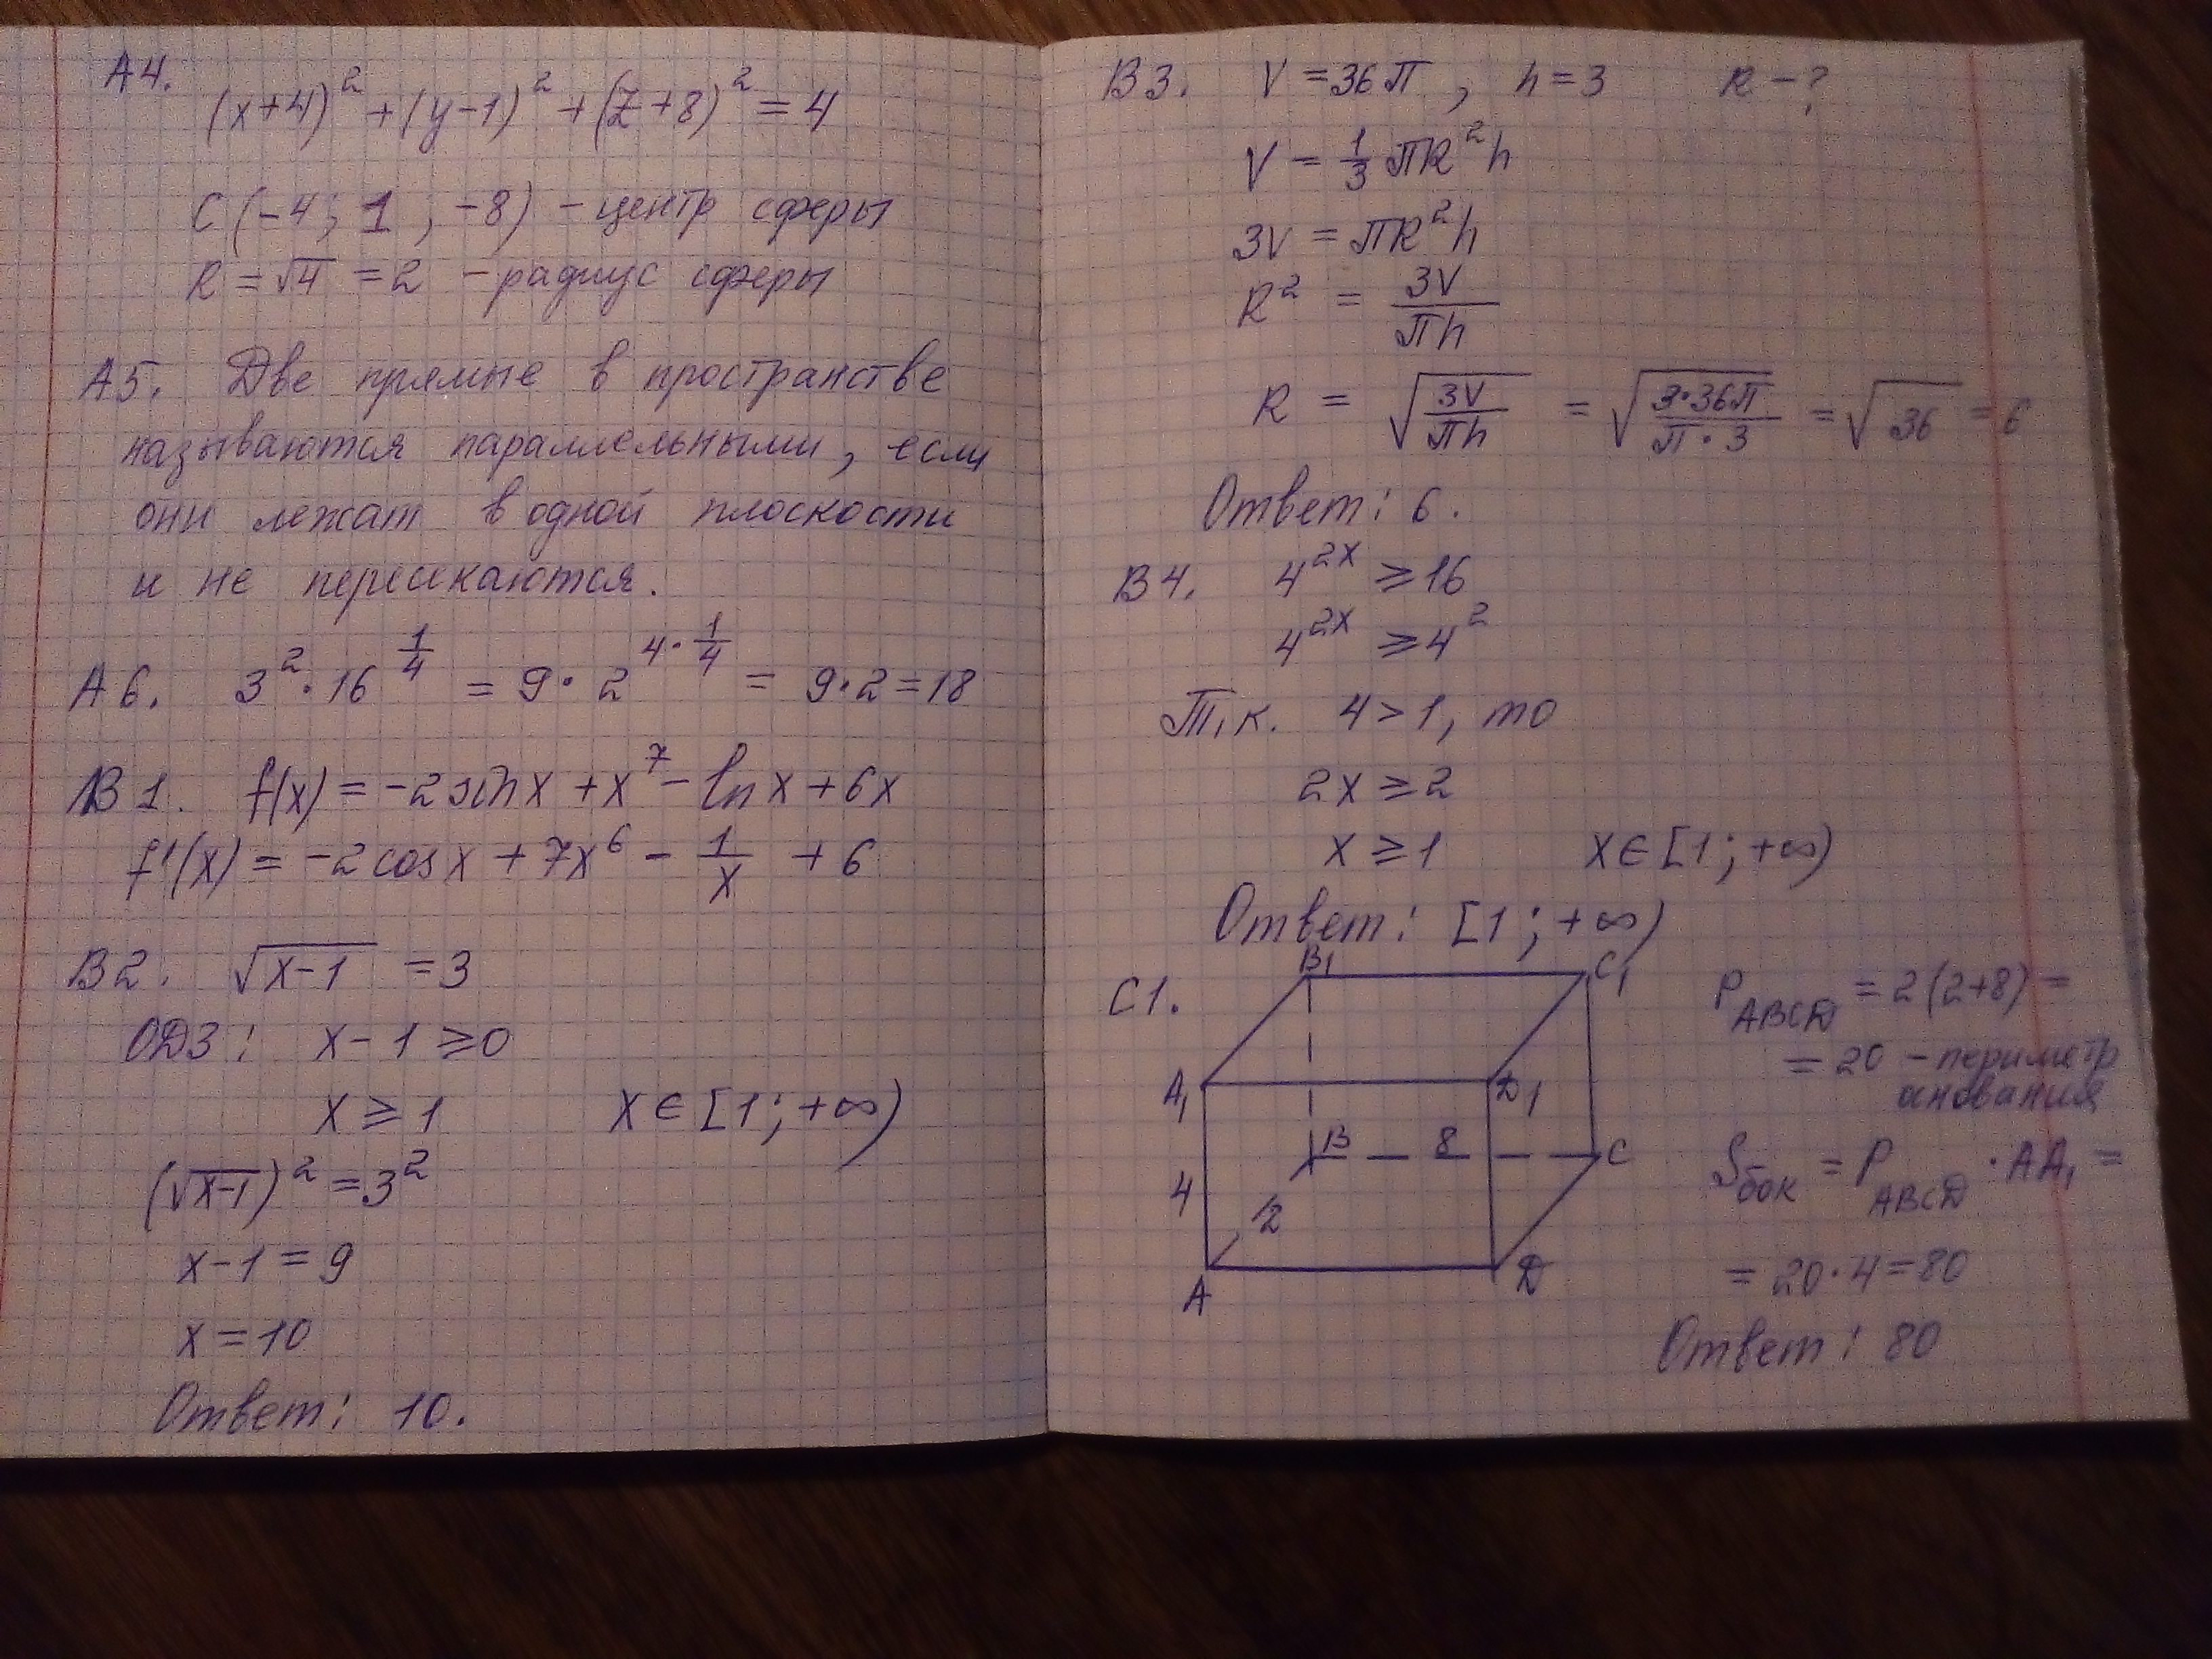 А4.
(x+4)² + (y-1)² + (z+8)² = 4
C(-4; 1; -8) - центр сферы
R = √4 = 2 - радиус сферы
А5. Две прямые в пространстве
называются параллельными, если
они лежат в одной плоскости
и не пересекаются.
А6. 3² · 16^(1/4) = 9 · 2^(4·1/4) = 9·2 = 18
В1. f(x) = -2 sin x + x⁷ - ln x + 6x
f'(x) = -2 cos x + 7x⁶ - 1/x + 6
В2. √(x-1) = 3
ОДЗ: x - 1 ⩾ 0
x ⩾ 1 x ∈ [1; +∞)
(√(x-1))² = 3²
x - 1 = 9
x = 10
Ответ: 10.
В3. V = 36π, h = 3 R - ?
V = 1/3 πR²h
3V = πR²h
R² = 3V/πh
R = √(3V/πh) = √(3·36π/π·3) = √36 = 6
Ответ: 6.
В4. 4^(2x) ⩾ 16
4^(2x) ⩾ 4²
Т.к. 4 > 1, то
2x ⩾ 2
x ⩾ 1 x ∈ [1; +∞)
Ответ: [1; +∞)
С1.
B₁ C₁
A₁ D₁
B 8 C
4 2
A D
P_ABCD = 2(2+8) =
= 20 - периметр
основания
S_бок = P_ABCD · AA₁ =
= 20·4 = 80
Ответ: 80